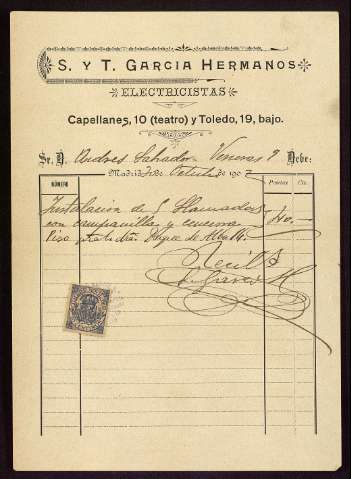 S. Y T. GARCIA HERMANOS
ELECTRICISTAS
Capellanes, 10 (teatro) y Toledo, 19, bajo.
Sr. D. Andres Salvador Veneras 9 Debe:
Madrid de Octubre de 190
NÚMERO Pesetas Cts.
Instalacion de 5 llamadores
con campanillas y 40,—
Piso Duque de Alba 14
Recibí
S. Garcia H